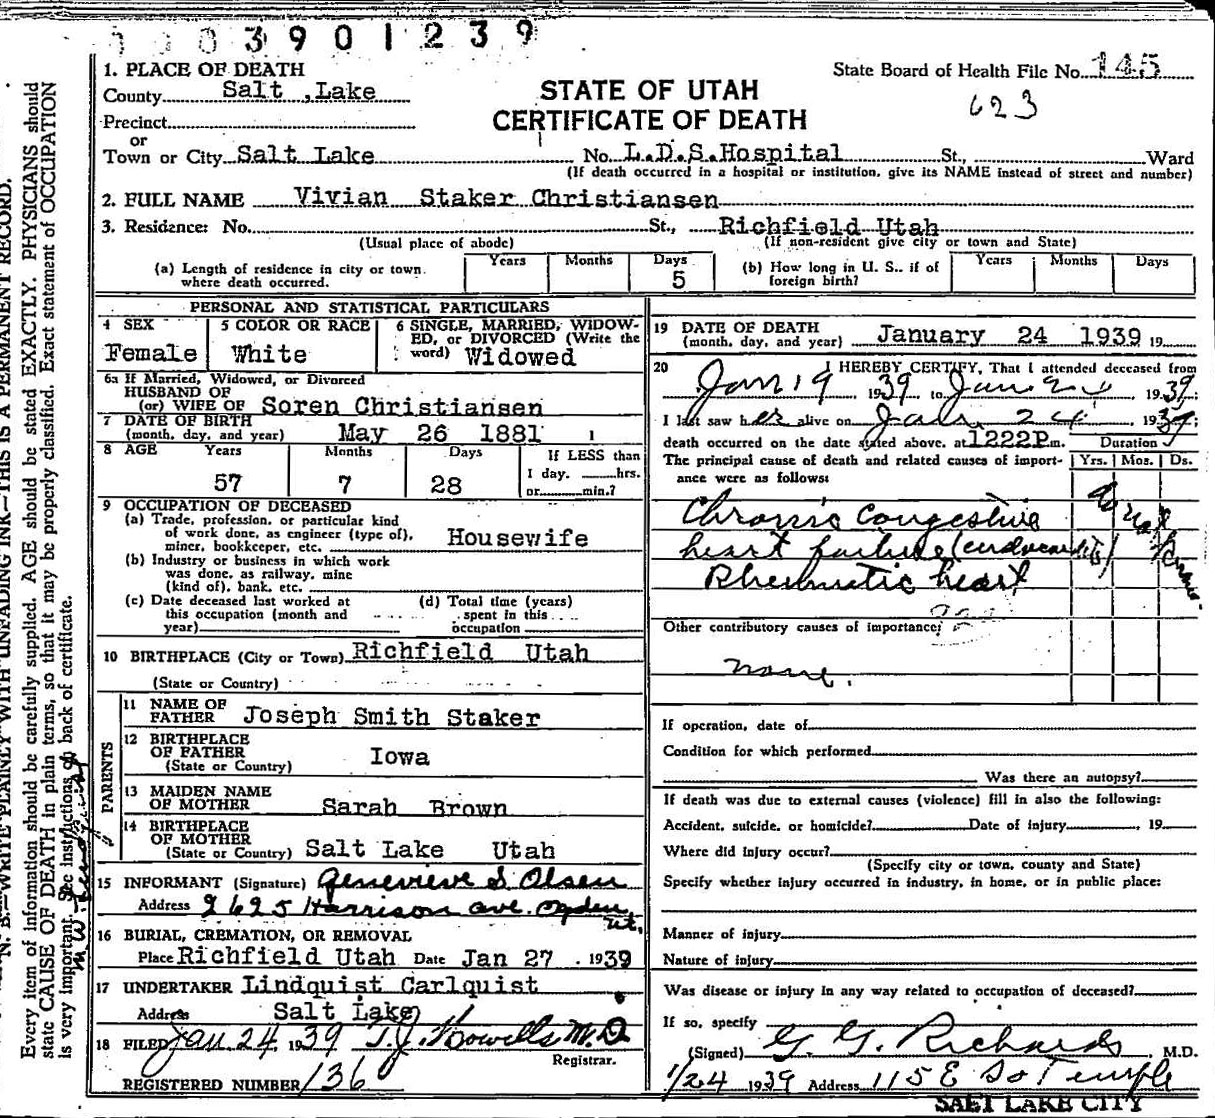 3901239
1. PLACE OF DEATH
County Salt, Lake
Precinct
or
Town or City Salt Lake
STATE OF UTAH
CERTIFICATE OF DEATH
State Board of Health File No. 145
623
No. L.D.S. Hospital St., Ward
(If death occurred in a hospital or institution, give its NAME instead of street and number)
2. FULL NAME Vivian Staker Christiansen
3. Residence: No. St., Richfield Utah
(Usual place of abode) (If non-resident give city or town and State)
(a) Length of residence in city or town where death occurred. Years Months Days 5
(b) How long in U. S., if of foreign birth? Years Months Days
PERSONAL AND STATISTICAL PARTICULARS
4 SEX Female
5 COLOR OR RACE White
6 SINGLE, MARRIED, WIDOWED, or DIVORCED (Write the word) Widowed
6a If Married, Widowed, or Divorced
HUSBAND OF
(or) WIFE OF Soren Christiansen
7 DATE OF BIRTH
(month, day, and year) May 26 1881
8 AGE Years Months Days If LESS than
57 7 28 1 day, hrs.
or min.?
9 OCCUPATION OF DECEASED
(a) Trade, profession, or particular kind
of work done, as engineer (type of),
miner, bookkeeper, etc. Housewife
(b) Industry or business in which work
was done, as railway, mine
(kind of), bank, etc.
(c) Date deceased last worked at
this occupation (month and
year)
(d) Total time (years)
spent in this
occupation
10 BIRTHPLACE (City or Town) Richfield Utah
(State or Country)
PARENTS
11 NAME OF
FATHER Joseph Smith Staker
12 BIRTHPLACE
OF FATHER
(State or Country) Iowa
13 MAIDEN NAME
OF MOTHER Sarah Brown
14 BIRTHPLACE
OF MOTHER
(State or Country) Salt Lake Utah
15 INFORMANT (Signature) Genevieve S Olsen
Address 2625 Harrison ave. Ogden, ut.
16 BURIAL, CREMATION, OR REMOVAL
Place Richfield Utah Date Jan 27 . 1939
17 UNDERTAKER Lindquist Carlquist
Address Salt Lake
18 FILED Jan 24 1939 T. J. Howells M.D.
Registrar.
REGISTERED NUMBER 136
19 DATE OF DEATH
(month, day, and year) January 24 1939 19
20 I HEREBY CERTIFY, That I attended deceased from
Jan 19 1939 to Jan 24 1939
I last saw her alive on Jan. 24 1939;
death occurred on the date stated above, at 1222P m. Duration
The principal cause of death and related causes of importance were as follows: Yrs. Mos. Ds.
Chronic Congestive
heart failure (endocarditis)
Rheumatic heart
do not know
Other contributory causes of importance:
none.
If operation, date of
Condition for which performed
Was there an autopsy?
If death was due to external causes (violence) fill in also the following:
Accident, suicide, or homicide? Date of injury , 19
Where did injury occur?
(Specify city or town, county and State)
Specify whether injury occurred in industry, in home, or in public place:
Manner of injury
Nature of injury
Was disease or injury in any way related to occupation of deceased?
If so, specify
(Signed) G. G. Richards, M.D.
1/24 1939 Address 115 E So Temple
SALT LAKE CITY
N. B.—WRITE PLAINLY WITH UNFADING INK—THIS IS A PERMANENT RECORD.
Every item of information should be carefully supplied. AGE should be stated EXACTLY. PHYSICIANS should
state CAUSE OF DEATH in plain terms, so that it may be properly classified. Exact statement of OCCUPATION
is very important. See instructions on back of certificate.